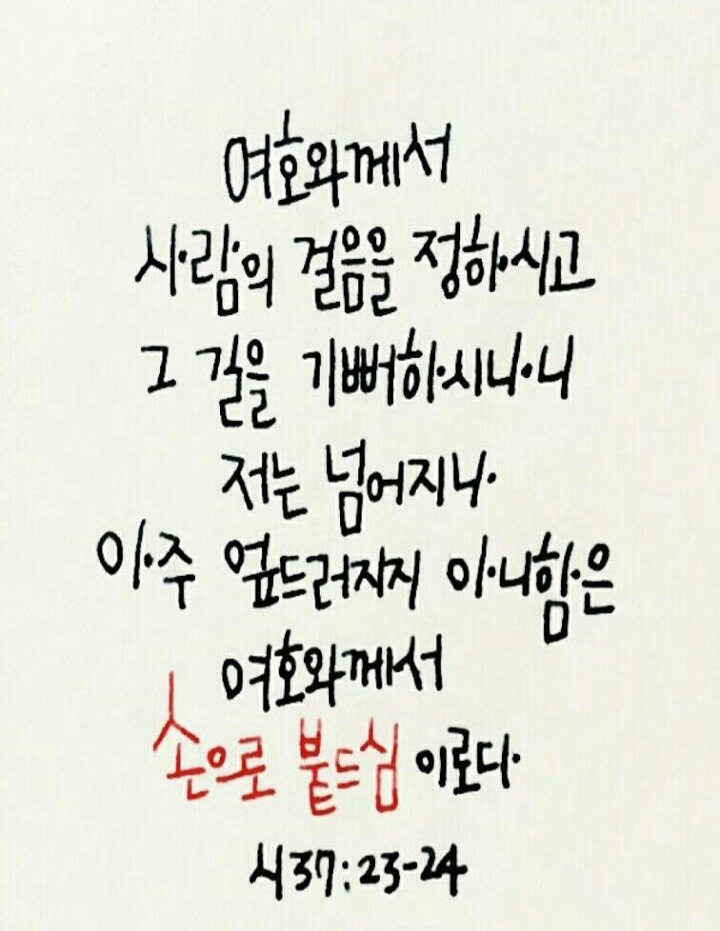 여호와께서
사람의 걸음을 정하시고
그 길을 기뻐하시나니
저는 넘어지나
아주 엎드러지지 아니함은
여호와께서
손으로 붙드심 이로다
시37:23-24